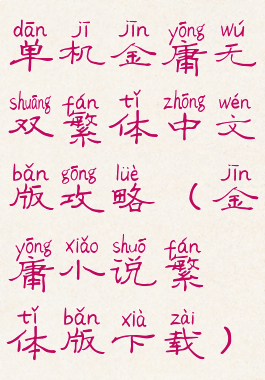 dān jī jīn yōng wú
单机金庸无
shuāng fán tǐ zhōng wén
双繁体中文
bǎn gōng lüè jīn
版攻略（金
yōng xiǎo shuō fán
庸小说繁
tǐ bǎn xià zài
体版下载）